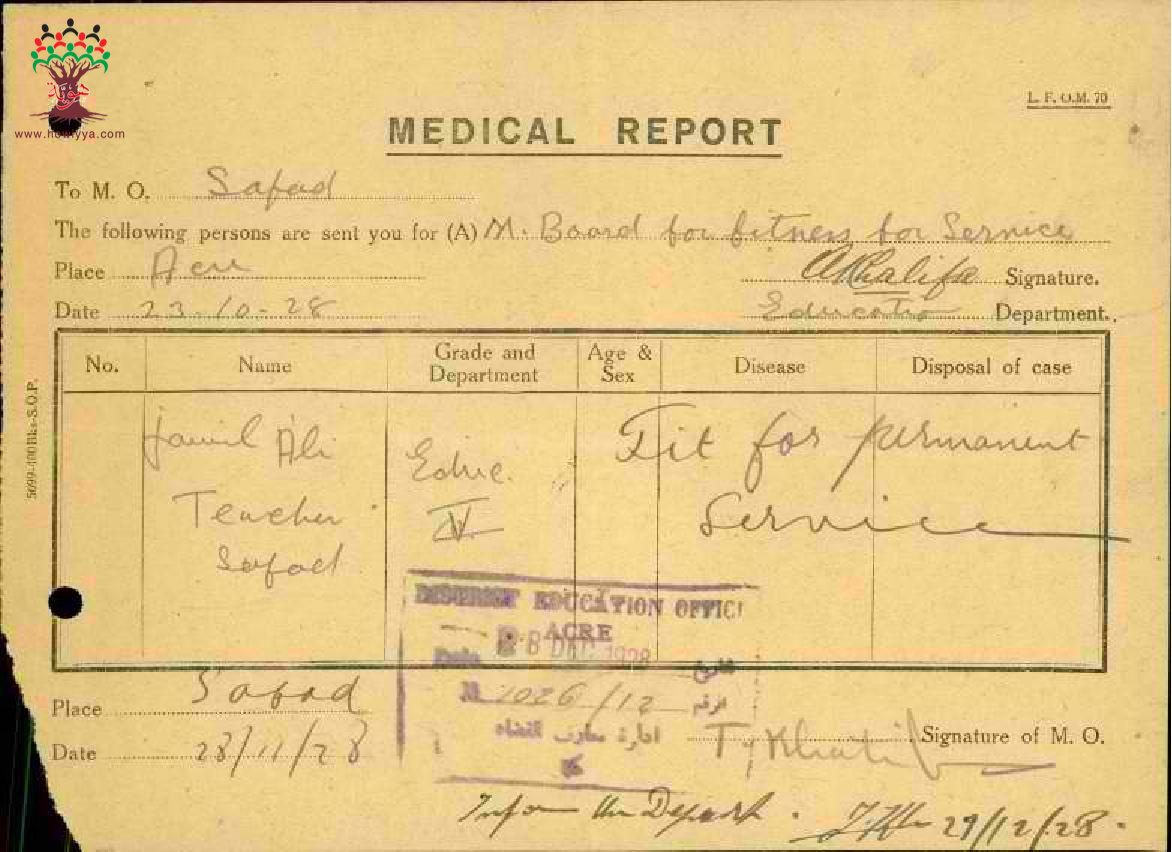 www.howiyya.com
L. F. O.M. 70
MEDICAL REPORT
To M. O. Safad
The following persons are sent you for (A) M. Board for fitness for Service
Place Acre
AKhalifa Signature.
Date 23.10-28
Education Department.
No. Name Grade and Department Age & Sex Disease Disposal of case
Jamil Ali Educ. Fit for permanent
Teacher IV Service
Safad
DISTRICT EDUCATION OFFICE
ACRE
Date 28 DEC 1928 تاريخ
N 1026/12 الرقم
ادارة معارف القضاء
عكا
Place Safad
Signature of M. O.
Date 28/11/28
Inform the Depart. 29/12/28.